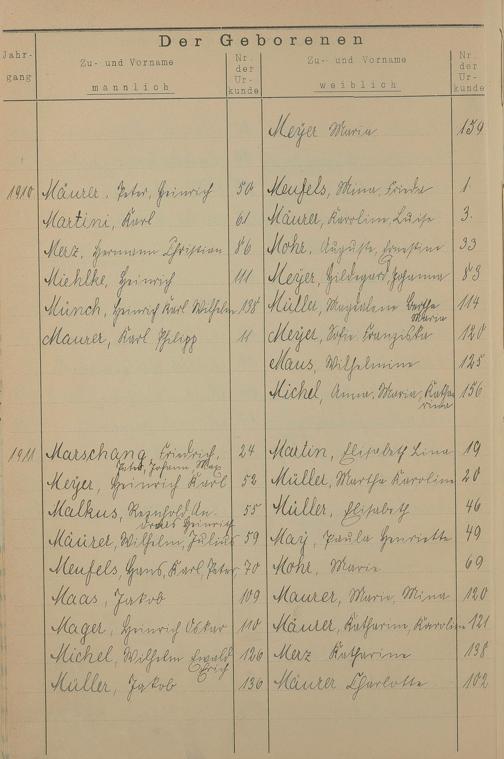 Der Geborenen
Jahr-
gang
Zu- und Vorname
männlich
Nr.
der
Ur-
kunde
Zu- und Vorname
weiblich
Nr.
der
Ur-
kunde
Meyer Maria 159
1910 Mäurer, Peter, Heinrich 50 Meufels, Mina, Frieda 1
Martini, Karl 61 Mäurer, Karoline, Luise 3.
Merz, Hermann Christian 86 Mohr, Auguste, Ernestine 33
Miehlke, Heinrich 111 Meyer, Hildegard, Johanna 83
Münch, Heinrich Karl Wilhelm 138 Müller, Magdalene Bertha 114
Maria
Maurer, Karl Philipp 11 Meyer, Sofie Franziska 120
Maus, Wilhelmine 125
Michel, Anna, Maria, Katha 156
rina
1911 Marschang, Friedrich, 24 Martin, Elisabeth Lina 19
Peter, Johann, Max
Meyer, Heinrich Karl 52 Müller, Martha Karoline 20
Malkus, Reinhold, An- 55 Müller, Elisabeth 46
dreas Heinrich
Mäurer, Wilhelm, Julius 59 May, Paula Henriette 49
Meufels, Hans, Karl, Peter 70 Mohr, Marie 69
Maas, Jakob 109 Maurer, Marie, Mina 120
Mager, Heinrich Oskar 110 Mäurer, Katharine, Karoline 121
Michel, Wilhelm Ewald 126 Merz Katharine 138
Erich
Müller, Jakob 136 Mäurer Charlotte 102